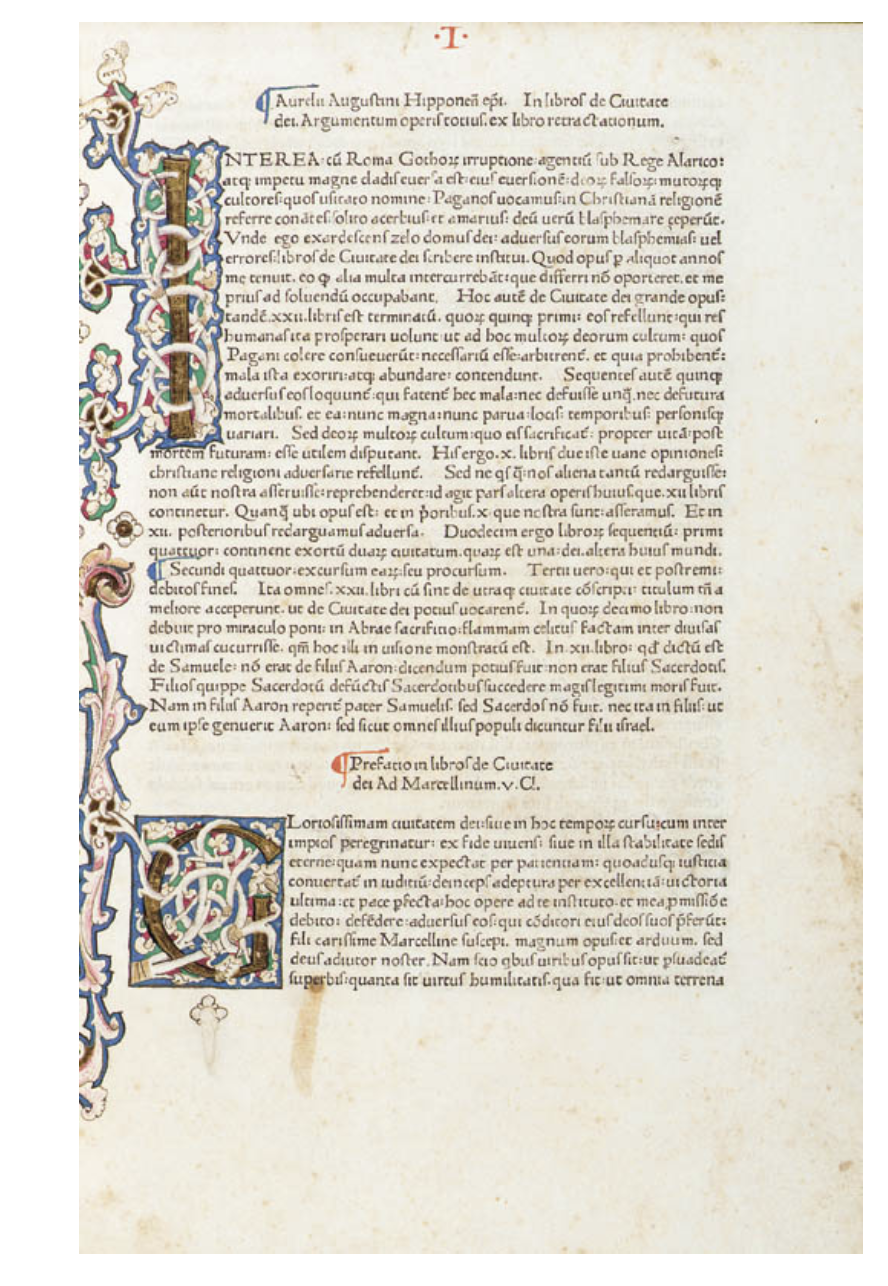 ·I·
Aurelii Augustini Hipponeñ ep̄i. In libros de Ciuitate
dei. Argumentum operis totius. ex libro retractationum.
INTEREA: cū Roma Gothoꝝ irruptione: agentiū sub Rege Alarico:
atqꝫ impetu magne cladis euersa est: eius euersionē: deoꝝ falsoꝝ: mutoꝝqꝫ
cultores: quos usitato nomine: Paganos uocamus: in Christianā religionē
referre conātes: solito acerbius: et amarius: deū uerū blasphemare ceperūt.
Vnde ego exardescens zelo domus dei: aduersus eorum blasphemias: uel
errores: libros de Ciuitate dei scribere institui. Quod opus ꝑ aliquot annos
me tenuit. eo ꝙ alia multa intercurrebāt: que differri nō oporteret. et me
prius ad soluendū occupabant. Hoc autē de Ciuitate dei grande opus:
tandē .xxii. libris est terminatū. quoꝝ quinqꝫ primi: eos refellunt: qui res
humanas ita prosperari uolunt: ut ad hoc multoꝝ deorum cultum: quos
Pagani colere consueuerūt: necessariū esse: arbitrent̄. et quia prohibent̄:
mala ista exoriri: atqꝫ abundare: contendunt. Sequentes autē quinqꝫ
aduersus eos loquunt̄: qui fatent̄ hec mala: nec defuisse unq̄. nec defutura
mortalibus. et ea: nunc magna: nunc parua: locis: temporibus: personisqꝫ
uariari. Sed deoꝝ multoꝝ cultum: quo eis sacrificat̄: propter uitā: post
mortem futuram: esse utilem disputant. His ergo .x. libris due iste uane opiniones:
christiane religioni aduersarie refellunt̄. Sed ne qs q̄: nos aliena tantū redarguisse:
non aūt nostra asseruisse: reprehenderet: id agit pars altera operis huius. que .xii libris
continetur. Quanq̄ ubi opus est: et in p̄oribus .x. que nostra sunt: asseramus. Et in
xii. posterioribus redarguamus aduersa. Duodecim ergo libroꝝ sequentiū: primi
quattuor: continent exortū duaꝝ ciuitatum. quaꝝ est una: dei. altera huius mundi.
Secundi quattuor: excursum eaꝝ: seu procursum. Tertii uero: qui et postremi:
debitos fines. Ita omnes .xxii. libri cū sint de utraqꝫ ciuitate cōscripti: titulum tn̄ a
meliore acceperunt. ut de Ciuitate dei potius uocarent̄. In quoꝝ decimo libro: non
debuit pro miraculo poni: in Abrae sacrifitio: flammam celitus factam inter diuisas
uictimas cucurrisse. qm̄ hoc illi in uisione monstratū est. In .xii. libro: qd̄ dictū est
de Samuele: nō erat de filiis Aaron: dicendum potius fuit: non erat filius Sacerdotis.
Filios quippe Sacerdotū defūctis Sacerdotibus succedere magis legitimi moris fuit.
Nam in filiis Aaron reperit̄ pater Samuelis. sed Sacerdos nō fuit. nec ita in filiis: ut
eum ipse genuerit Aaron: sed sicut omnes illius populi dicuntur filii israel.
Prefatio in libros de Ciuitate
dei Ad Marcellinum .v. Cl.
GLoriosissimam ciuitatem dei: siue in hoc tempoꝝ cursu: cum inter
impios peregrinatur: ex fide uiuens: siue in illa stabilitate sedis
eterne: quam nunc expectat per patientiam: quoadusqꝫ iustitia
conuertat̄ in iuditiū: deinceps adeptura per excellentiā: uictoria
ultima: et pace ꝑfecta: hoc opere ad te instituto: et mea ꝓmissiōe
debito: defēdere: aduersus eos: qui cōditori eius deos suos p̄ferūt:
fili carissime Marcelline suscepi. magnum opus: et arduum. sed
deus adiutor noster. Nam scio qbus uiribus opus sit: ut ꝑsuadeat̄
superbis: quanta sit uirtus humilitatis. qua fit: ut omnia terrena